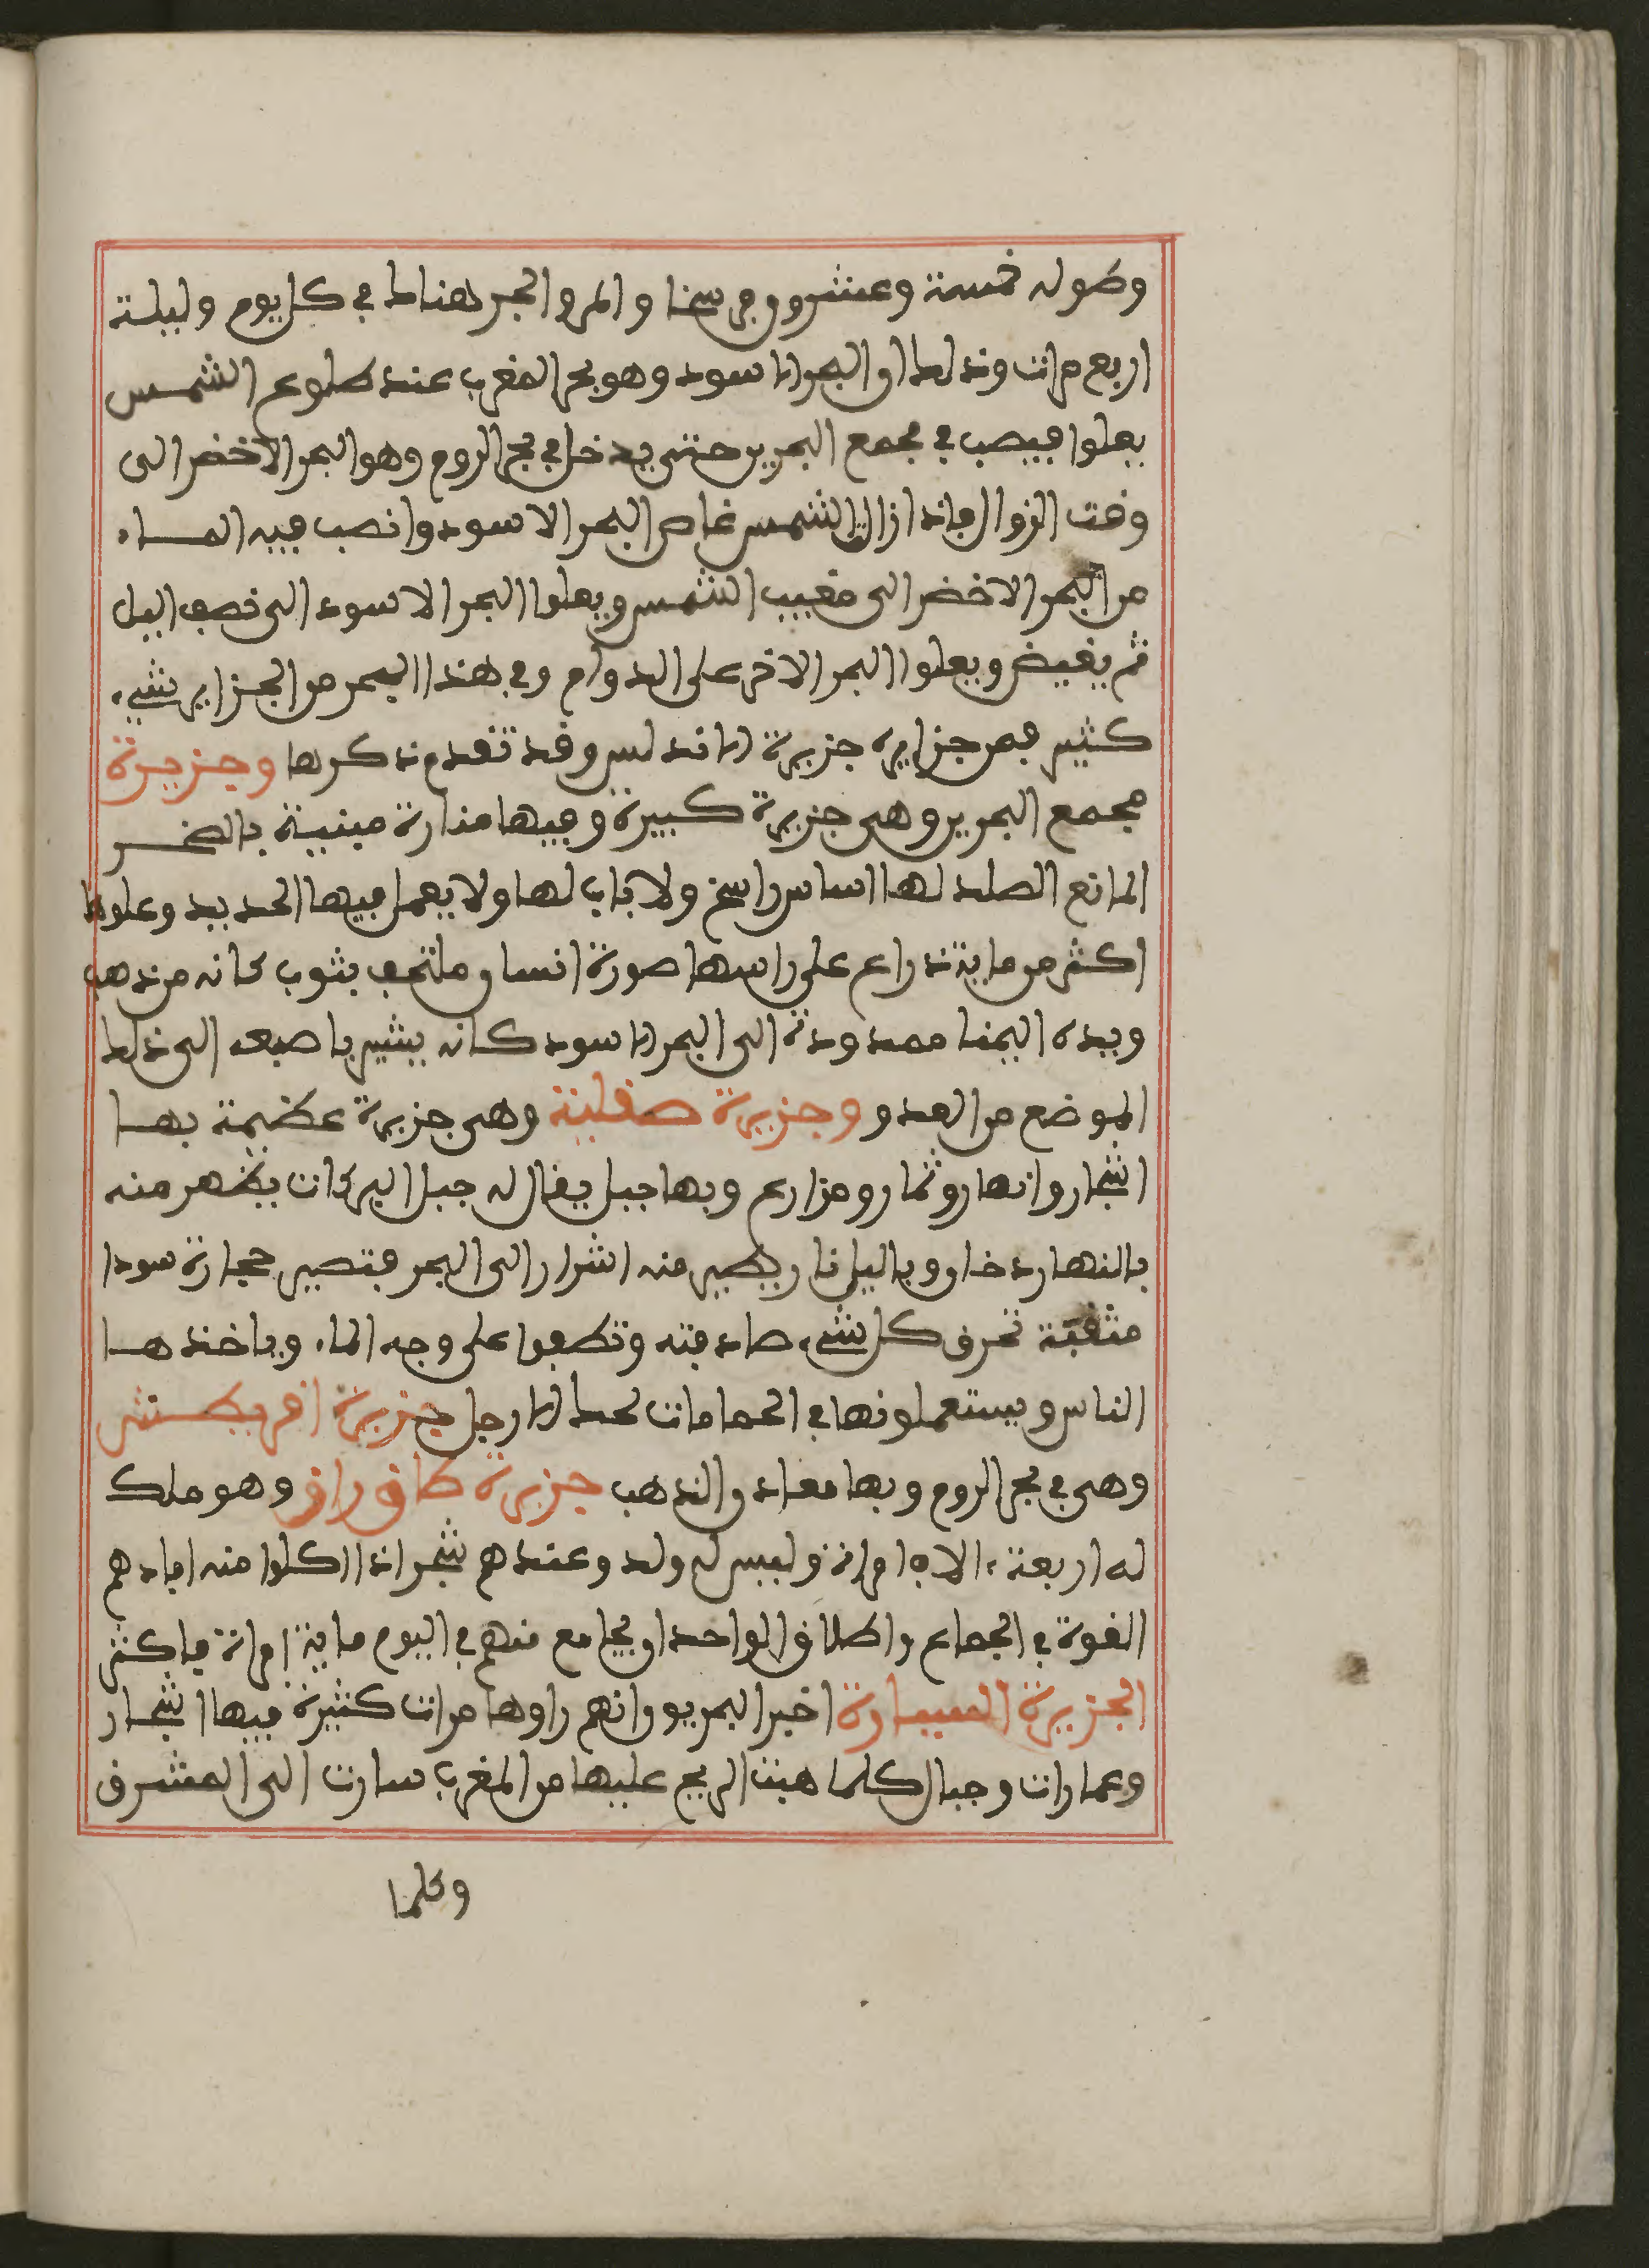 وطوله خمسة وعشرون فرسخا والمد والجزر هناك في كل يوم وليلة
اربع مرات وذلك ان البحر الاسود وهو بحر المغرب عند طلوع الشمس
يعلوا فيصب في مجمع البحرين حتى يدخل في بحر الروم وهو البحر الاخضر الى
وقت الزوال فاذا زالت الشمس غاض البحر الاسود وانصب فيه الماء
من البحر الاخضر الى مغيب الشمس ويعلوا البحر الاسود الى نصف اليل
ثم يغيض ويعلوا البحر الاخر على الدوام وفي هذا البحر من الجزاير شيء
كثير فمن جزايره جزيرة الاندلس وقد تقدم ذكرها وجزيرة
مجمع البحرين وهى جزيرة كبيرة وفيها منارة مبنية بالصخر
المانع الصلد لها اساس راسخ ولا باب لها ولا يعمل فيها الحديد وعلوها
اكثر من ماية ذراع على راسها صورة انسان ملتحف بثوب كانه من ذهب
ويده اليمنا ممدودة الى البحر الاسود كانه يشير باصبعه الى ذلك
الموضع من العدو وجزيرة صقلية وهى جزيرة عظيمة بها
اشجار وانهار وثمار ومزارع وبها جبل يقال له جبل البركات يظهر منه
بالنهار دخان وباليل نار يطير منه اشرار الى البحر فتصير حجارة سودا
مثقبة تحرق كل شيء صادفته وتطفوا على وجه الماء وياخذها
الناس ويستعملونها في الحمامات لحك الارجل جزيرة اقريطش
وهى في بحر الروم وبها معادن الذهب جزيرة طاق راق وهو ملك
له اربعة ءالاف امراة وليس له ولد وعندهم شجر اذا اكلوا منه افادهم
القوة في الجماع واطلاق الواحد ان يجامع منهم في اليوم ماية امراة فاكثر
الجزيرة السيارة اخبر البحريون انهم راوها مرات كثيرة فيها اشجار
وعمارات وجبال كلما هبت الريح عليها من المغرب سارت الى المشرق
وكلما